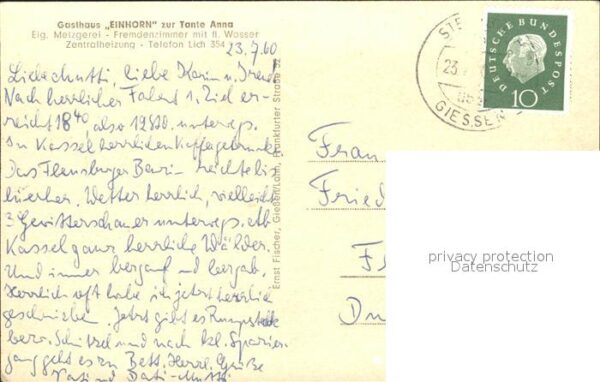 Gasthaus „EINHORN" zur Tante Anna
Eig. Metzgerei - Fremdenzimmer mit fl. Wasser
Zentralheizung - Telefon Lich 354
23.7.60
liebe Karin u.
Nach herrlicher Fahrt 1. Ziel er-
reicht 18⁴⁰ also unterwegs.
In Kassel herrlichen Kaffee
Das Flensburger reichte bis
hierher. Wetter herrlich, vielleicht
3 Gewitterschauer unterwegs. Ab
Kassel ganz herrliche Wälder.
Und immer bergauf und bergab.
Herrlich oft habe ich jetzt herrlich
geschrieben. Jetzt gibt es Rumpsteak
bezw. Schnitzel und nach kl. Spazier-
gang geht es zu Bett. Herzl. Grüße
Vati und
Ernst Fischer, Gießen/Lahn, Frankfurter Straße 32
GIESSEN
23.
DEUTSCHE BUNDESPOST
10
Frau
Fried
privacy protection
Datenschutz